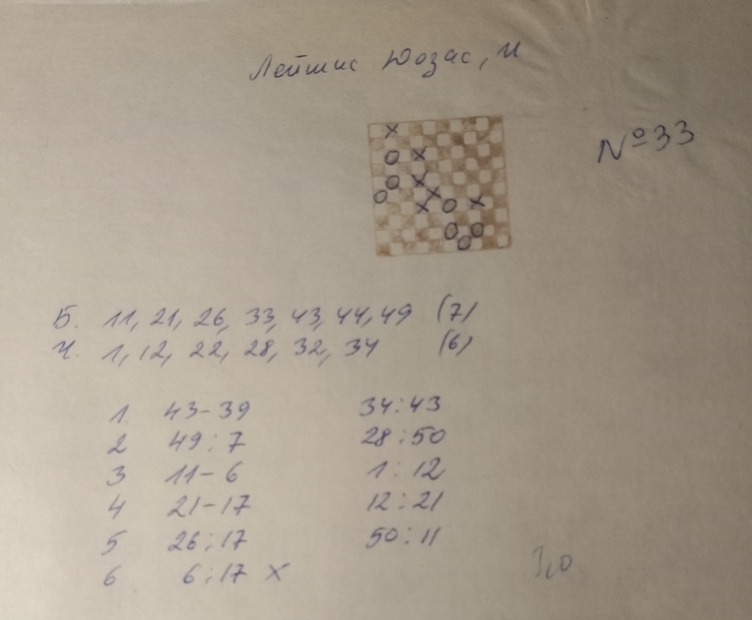 Лейшис Юозас, И
№33
Б. 11, 21, 26, 33, 43, 44, 49 (7)
Ч. 1, 12, 22, 28, 32, 34 (6)
1. 43-39 34:43
2 49:7 28:50
3 11-6 1:12
4 21-17 12:21
5 26:17 50:11
6 6:17 x